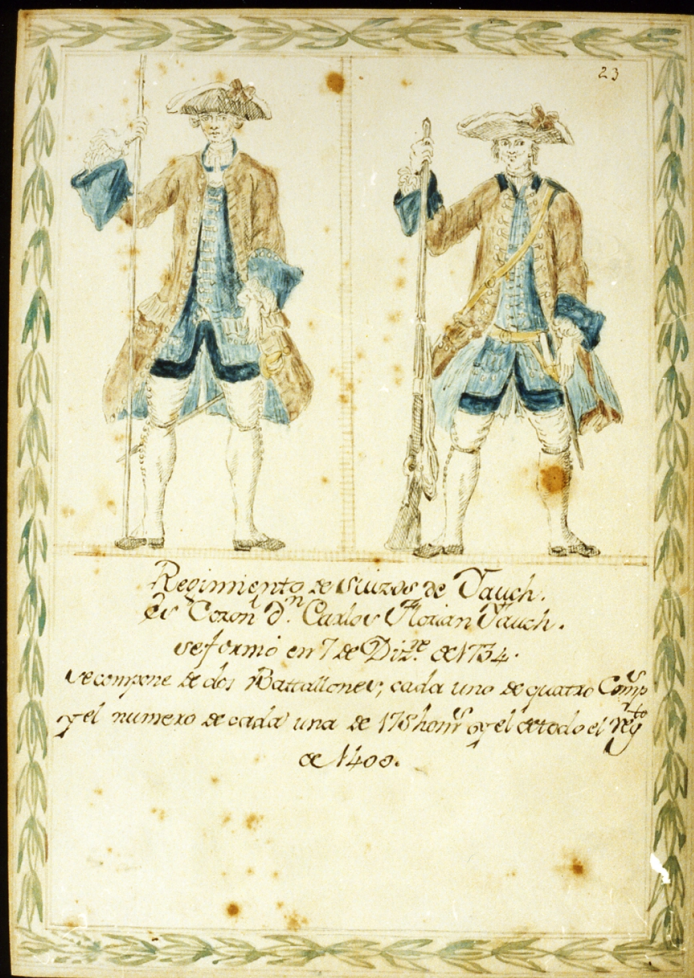 23
Regimiento de Suizos de Jauch.
Es Coron.l d.n Carlos Florian Jauch.
se formó en 7 de Diz.re de 1734.
se compone de dos Battallones, cada uno de quatro Comp.s
y el numero de cada una de 175 hom.s y el de todo el Reg.to
de 1400.